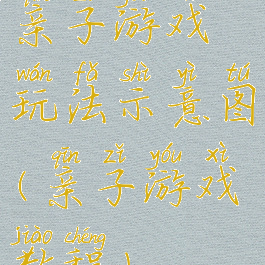 亲子游戏
wán fǎ shì yì tú
玩法示意图
qīn zǐ yóu xì
(亲子游戏
jiào chéng
教程)